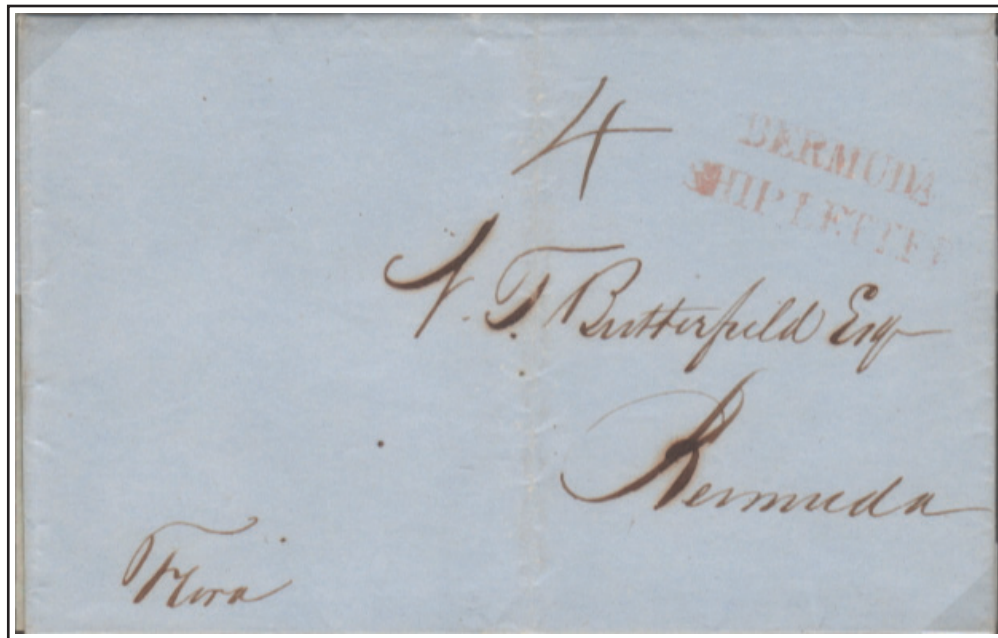 4
BERMUDA
SHIP LETTER
N. T. Butterfield Esq
Bermuda
Flora